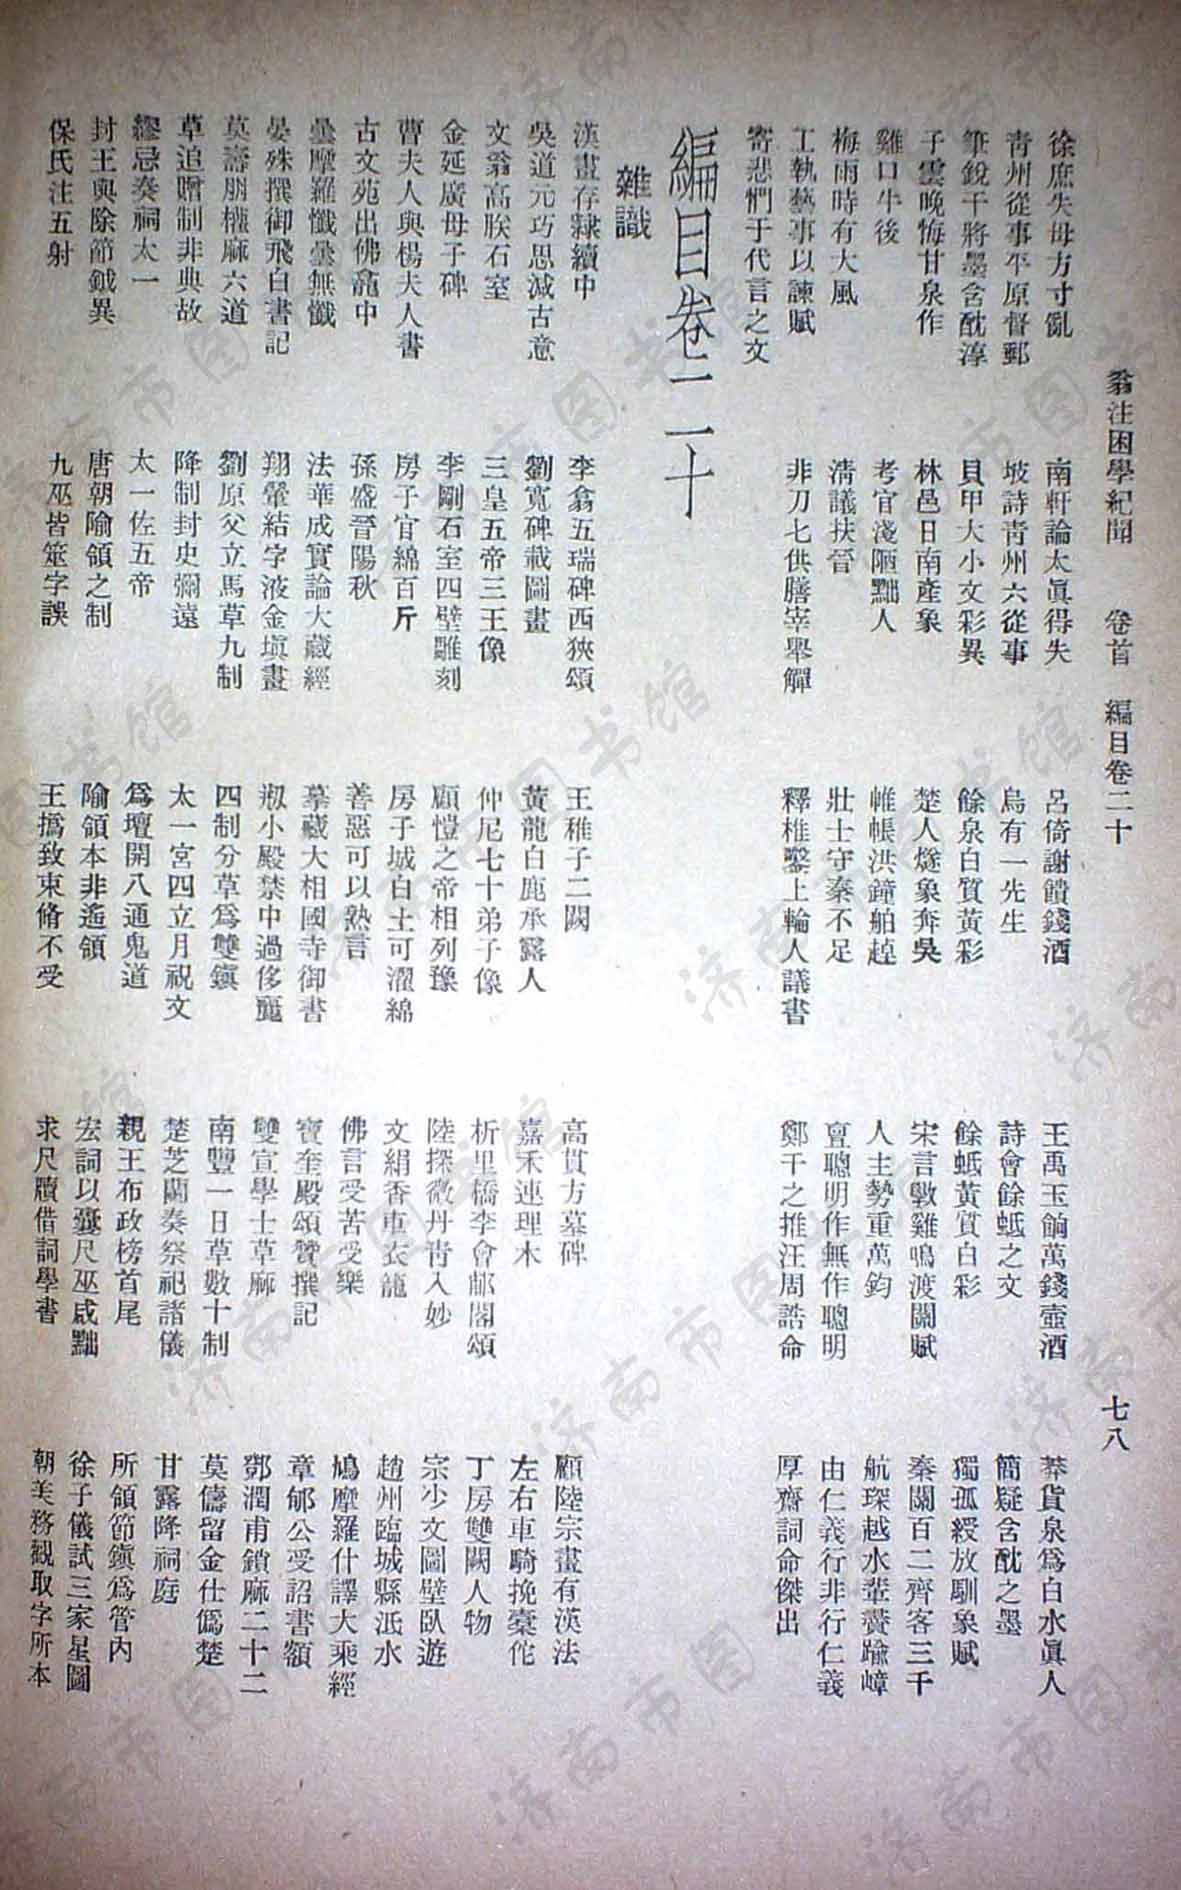 翁注困學紀聞 卷首 編目卷二十 七八
徐庶失母方寸亂 南軒論太眞得失 呂倚謝饋錢酒 王禹玉餉萬錢壺酒 莽貨泉爲白水眞人
青州從事平原督郵 坡詩青州六從事 烏有一先生 詩會餘蚳之文 簡疑含酖之墨
筆銳干將墨含酖淳 貝甲大小文彩異 餘泉白質黃彩 餘蚳黃質白彩 獨孤綬放馴象賦
子雲晚悔甘泉作 林邑日南產象 楚人燧象奔吳 宋言斅雞鳴渡關賦 秦關百二齊客三千
雞口牛後 考官淺陋黜人 帷帳洪鐘舶趠 人主勢重萬鈞 航琛越水輦賮踰嶂
梅雨時有大風 清議扶晉 壯士守秦不足 亶聰明作無作聰明 由仁義行非行仁義
工執藝事以諫賦 非刀匕供膳宰舉觶 釋椎鑿上輪人議書 鄭千之推汪周誥命 厚齋詞命傑出
寄悲憫于代言之文
編目卷二十
雜識
漢畫存隸續中 李翕五瑞碑西狹頌 王稚子二闕 高貫方墓碑 顧陸宗畫有漢法
吳道元巧思減古意 劉寬碑載圖畫 黃龍白鹿承露人 嘉禾連理木 左右車騎挽橐佗
文翁高朕石室 三皇五帝三王像 仲尼七十弟子像 析里橋李會郙閣頌 丁房雙闕人物
金延廣母子碑 李剛石室四壁雕刻 顧愷之帝相列豫 陸探微丹青入妙 宗少文圖壁臥遊
曹夫人與楊夫人書 房子官綿百斤 房子城白土可濯綿 文絹香車衣籠 趙州臨城縣泜水
古文苑出佛龕中 孫盛晉陽秋 善惡可以熟言 佛言受苦受樂 鳩摩羅什譯大乘經
曇摩羅懺曇無懺 法華成實論大藏經 摹藏大相國寺御書 寶奎殿頌贊撰記 章郇公受詔書額
晏殊撰御飛白書記 翔鸞結字液金塡畫 椒小殿禁中過侈麗 雙宣學士草麻 鄧潤甫鎖麻二十二
莫壽朋權麻六道 劉原父立馬草九制 四制分草爲雙鎮 南豐一日草數十制 莫儔留金仕僞楚
草追贈制非典故 降制封史彌遠 太一宮四立月祝文 楚芝蘭奏祭祀諸儀 甘露降祠庭
繆忌奏祠太一 太一佐五帝 爲壇開八通鬼道 親王布政榜首尾 所領節鎮爲管內
封王與除節鉞異 唐朝隃領之制 隃領本非遙領 宏詞以囊尺巫咸黜 徐子儀試三家星圖
保氏注五射 九巫皆筮字誤 王撝致束脩不受 求尺牘借詞學書 朝美務觀取字所本